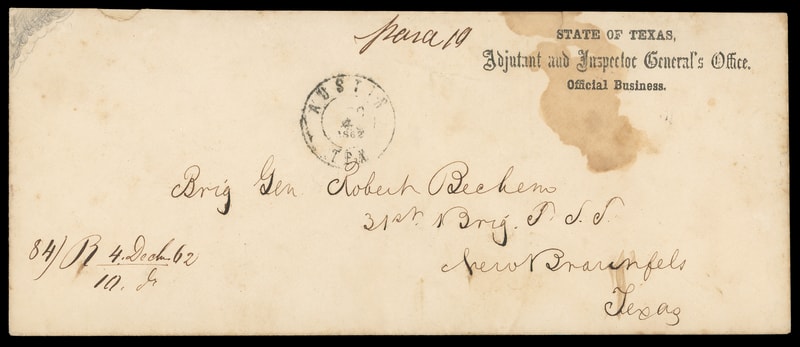 para 10
STATE OF TEXAS,
Adjutant and Inspector General's Office.
Official Business.
AUSTIN
1862
TEX
Brig Gen Robert Bechem
31st. Brig. T. S. T.
New Braunfels
Texas
84) R 4. Decbr. 62
10.